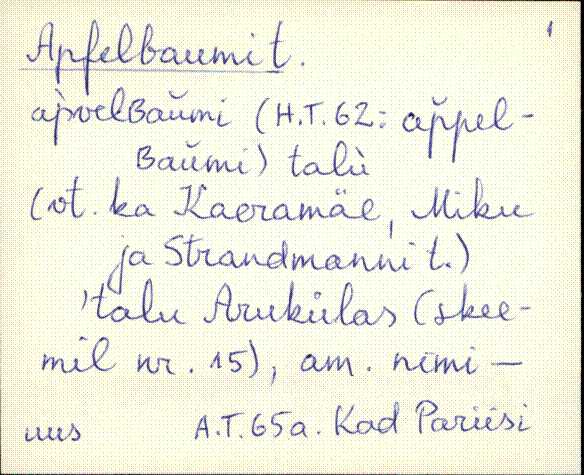 1
Apfelbaumi t.
apvelBaŭmi (H.T.62: aŭppel-
Baŭmi) talù
(vt. ka Kaeramäe, Miku
ja Strandmanni t.)
'talu Arukülas (skee-
mil nr. 15), am. nimi —
uus A.T.65a. Kad Pariisi